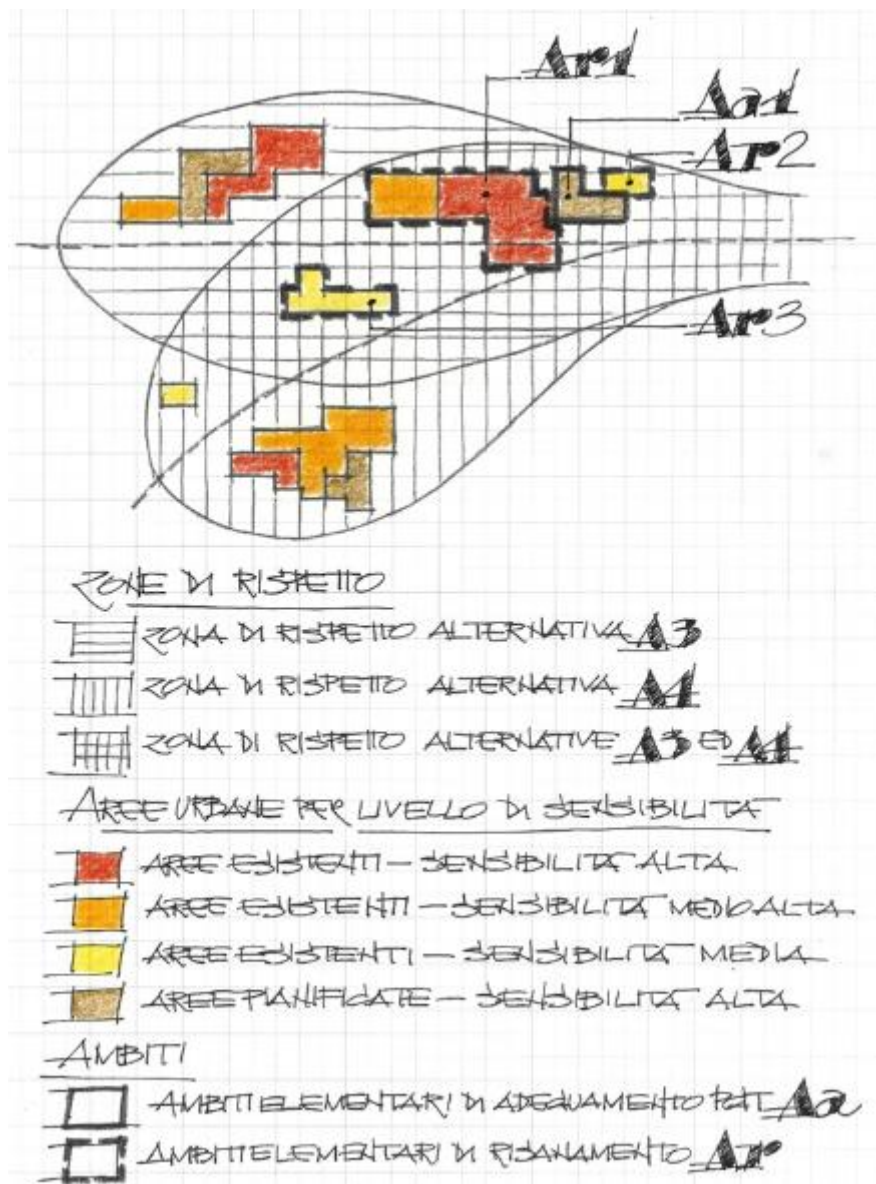 Ar1
Aa1
Ar2
Ar3
ZONE DI RISPETTO
ZONA DI RISPETTO ALTERNATIVA A3
ZONA DI RISPETTO ALTERNATIVA A4
ZONA DI RISPETTO ALTERNATIVE A3 ED A4
AREE URBANE PER LIVELLO DI SENSIBILITÀ
AREE ESISTENTI – SENSIBILITÀ ALTA
AREE ESISTENTI – SENSIBILITÀ MEDIO ALTA
AREE ESISTENTI – SENSIBILITÀ MEDIA
AREE PIANIFICATE – SENSIBILITÀ ALTA
AMBITI
AMBITI ELEMENTARI DI ADEGUAMENTO PGT Aa
AMBITI ELEMENTARI DI RISANAMENTO Ar